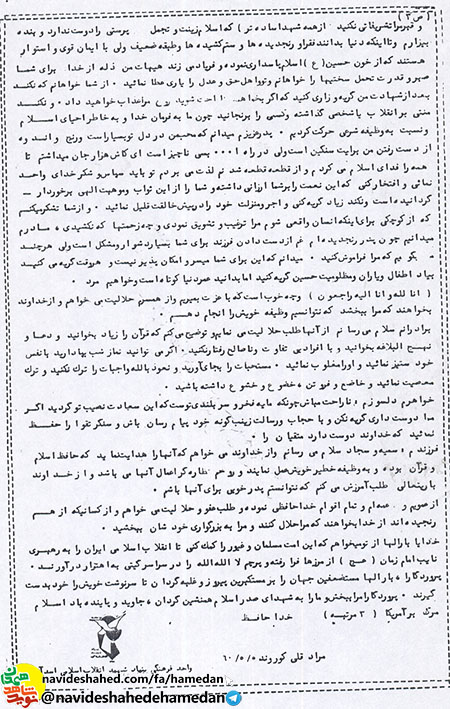 (ص ۳)
و قبر مرا تشریفاتی نکنید از همه شهدا ساده تر که اسلام زینت و تجمل پرستی را دوست ندارد و بنده
بیزارم و تا اینکه دنیا بدانند فقرا و رنجدیده ها و ستم کشیده ها وطبقه ضعیف ولی با ایمان قوی و استوار
هستند که از خون حسین (ع) اسلام پاسداری نموده و فریاد می زند هیهات من ذله از خدا برای شما
صبر و قدرت تحمل سختیها را خواهانم و تووا هل حق و عدل را یاری عطا نمائید . از شما خواهانم که نکند
بعد از شهادت من گریه و زاری کنید که اگر بخواهید ناراحت شوید روح مرا عذاب خواهید داد و نکند
منتی بر انقلاب یا شخصی گذاشته و نفسی را برنجانید چون ما به فرمان خدا و به خاطر احیای اسلام
و نسبت به وظیفه شرعی حرکت کردیم . پدر عزیزم میدانم که محبتمن در دل تو بسیار است و رنج و اندوه
از دست رفتن من برایت سنگین است ولی در راه ا۰۰۰ بسی ناچیز است ای کاش هزار جان میداشتم تا
همه را فدای اسلام می کردم و از قطعه قطعه شدنم لذت می بردم تو باید سپاس و شکر خدای واحد
نمائی و افتخار کنی که این نعمت را بر شما ارزانی داشته و شما را از این ثواب و موهبت الهی برخوردار
گردانیده است ونکند زیاد گریه کنی و اجر و منزلت خود را در پیش خالقت قلیل نمائید . و از شما تشکر میکنم
که از کوچکی برای اینکه انسان واقعی شوم مرا ترغیب و تشویق نمودی و چه زحمتها که نکشیدی ، مادرم
میدانیم چون پدر رنجدیده ام غم از دست دادن فرزند برای شما بسیار دشوار و مشکل است ولی هر چند
بگویم که مرا فراموش کنید . میدانم که این برای شما میسر و امکان پذیر نیست و هر وقت گریه می کنید
بیاد اطفال و یاران و مظلومیت حسین گریه کنید اما بدانید عمر دنیا کوتاه است و خواهیم مرد .
( انا لله و انا الیه راجعون ) وچه خوب است که با عزت بمیریم و از همسرم حلالیت می خواهم و از خداوند
بخواهند که مرا ببخشد که نتوانستم وظیفه خویش را انجام دهم .
برادرانم سلام می رسانم از آنها طلب حلالیت می نمایم و توضیح می کنم که قرآن را زیاد بخوانید و دعا و
نهج البلاغه بخوانید و با افراد بی تفاوت و ناصالح رفتار نکنید . اگر می توانید نماز شب بپا دارید با نفس
خود ستیز نمائید و او را مغلوب نمائید . مستحبات را بجای آورید و نعوذ بالله واجبات را ترک نکنید و ترک
معصیت نمائید و خاضع و فروتن ، خضوع و خشوع داشته باشید .
خواهرم دلسوزم ، ناراحت مباش چونکه مایه فخر و سربلندی توست که این سعادت نصیب تو گردید اگر
مرا دوست داری گریه نکن و با حجاب و رسالت زینب گونه خود پیام رسان باش و سنگر تقوا را حفظ
نمائید که خداوند دوست دارد متقیان را .
فرزندم ، سمیه و سجاد سلام می رسانم و از خداوند می خواهم که آنها را هدایت نماید که حافظ اسلام
و قرآن بوده و به وظیفه خطیر خویش عمل نمایند و روحم نظاره گر اعمال آنها می باشد و از خداوند
باریتعالی طلب آمرزش می کنم که نتوانستم پدر خوبی برای آنها باشم .
از عمویم و عمه ام و تمام اقوام خداحافظی نموده و طلب عفو و حلالیت می خواهم و از کسانیکه از من
رنجیده اند از خدا بخواهند که مرا حلال کنند و مرا به بزرگواری خودشان ببخشید .
خدایا بارالها از تو میخواهم که این امت مسلمان و غیور را کمک کنی تا انقلاب اسلامی ایران را به رهبری
نایب امام زمان (عج) از مرزها فرا رفته و پرچم لا اله الا الله را در سراسر گیتی به اهتزاز در آورند .
پروردگارا ، بارالها مستضعفین جهان را بر مستکبرین پیروز و غلبه گردان تا سرنوشت خویش را خود بدست
گیرند . پروردگارا مرا ببخش و ما را به شهدای صدر اسلام همنشین گردان ، جاوید و پاینده باد اسلام
مرگ بر آمریکا ( ۳ مرتبه ) خدا حافظ
مراد قلی کوروند ۶۰/۵/۵
واحد فرهنگی بنیاد شهید انقلاب اسلامی اسدآباد
navideshahed.com/fa/hamedan
@navideshahedehamedan